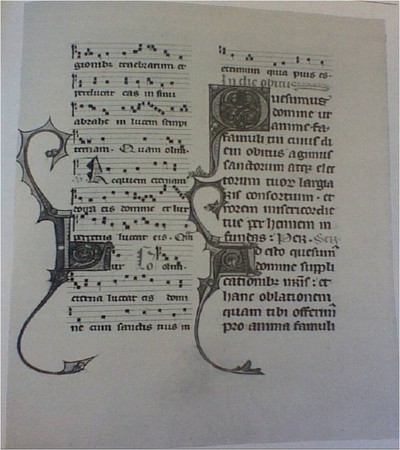 gionibz tenebrarum et
perducat eas in sinu
abrahe in lucem sempi
ternam. Quam olim.
Requiem eternam
dona eis domine et lux
perpetua luceat eis. Qm
Lur Lo olim.
eterna luceat eis domi
ne cum sanctis tuis in
eternum quia pius es.
In die obitus
Quesumus
domine ut
anime fa
famuli tui cuius di
em obitus agimus
sanctorum atqz elec
torum tuorum largia
ris consortium. et
rorem misericordie
tue perhennem in
fundas. Per. Secr
Adesto quesum
domine suppli
cationibz nris: et
hanc oblationem
quam tibi offerim
pro anima famuli